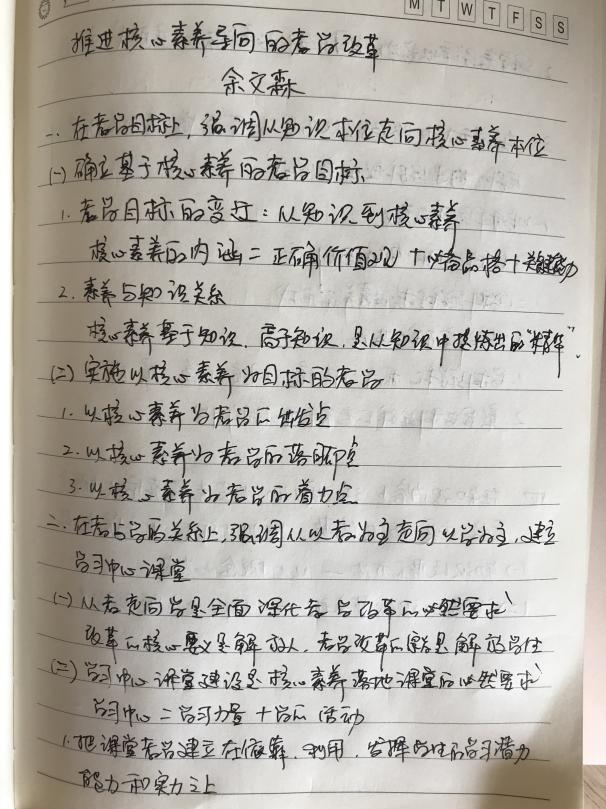 M T W T F S S
推进核心素养导向的教学改革
余文森
一、在教学目标上，强调从知识本位走向核心素养本位
(一)确立基于核心素养的教学目标
1. 教学目标的变迁：从知识到核心素养
核心素养的内涵=正确价值观+必备品格+关键能力
2. 素养与知识关系
核心素养基于知识，高于知识，是从知识中提炼出的“精华”。
(二)实施以核心素养为目标的教学
1. 以核心素养为教学的出发点
2. 以核心素养为教学的落脚点
3. 以核心素养为教学的着力点
二、在教与学的关系上，强调从以教为主走向以学为主，建立
学习中心课堂
(一)从教走向学是全面深化教学改革的必然要求
改革的核心要义是解放人，教学改革的宗旨是解放学生
(二)学习中心课堂建设是核心素养落地课堂的必然要求
学习中心=学习力量+学的活动
1. 把课堂教学建立在依靠、利用、发挥学生的学习潜力
能力和实力之上